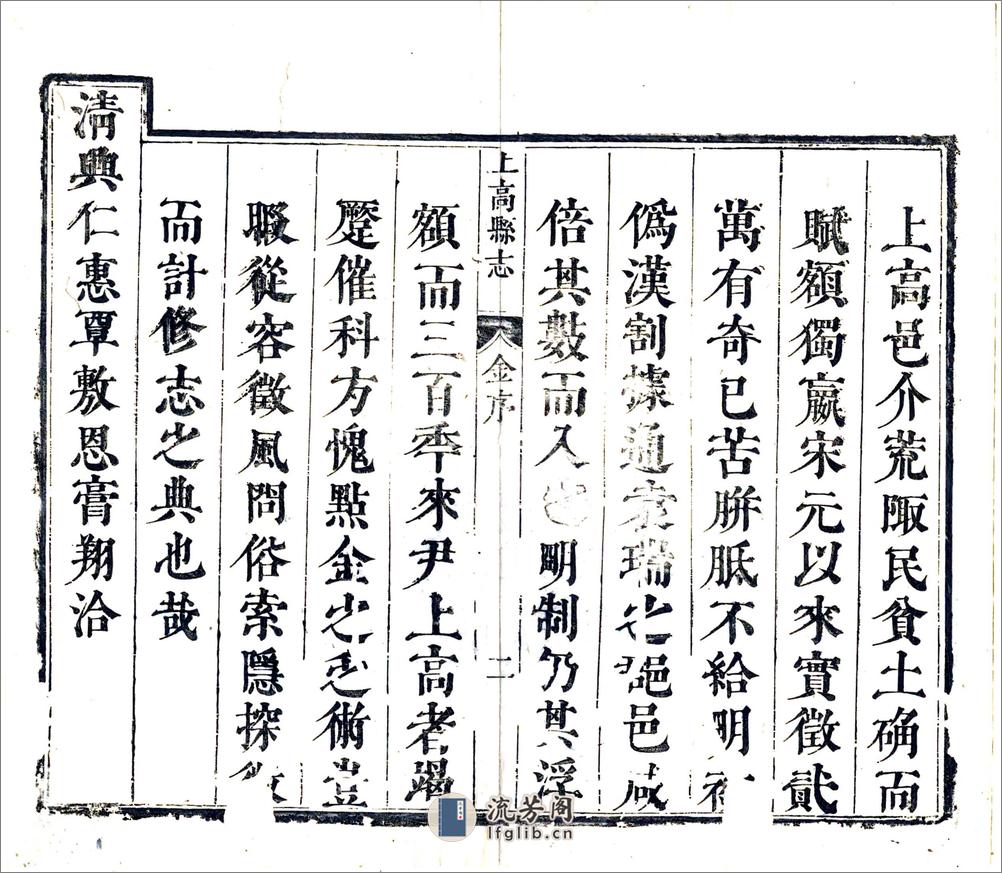 上高邑介荒陬民貧土确而
賦額獨嬴宋元以來實徵貮
萬有奇已苦胼胝不給明
僞漢割據通袁瑞之邑咸
倍其數而入也明制乃其浮
上高縣志 金序 二
額而三百年來尹上高者竭
蹷催科方愧點金之無術豈
暇從容徵風問俗索隱探
而計修志之典也哉
清興仁惠覃敷恩膏翔洽
流芳阁
lfglib.cn